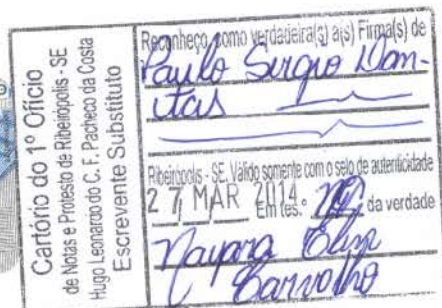 Cartório do 1º Ofício
de Notas e Protesto de Ribeirópolis - SE
Hugo Leonardo do C. F. Pacheco da Costa
Escrevente Substituto
Reconheço, como verdadeira(s) a(s) Firma(s) de
Paulo Sergio Dan-
tas
Ribeirópolis - SE. Válido somente com o selo de autenticidade
27 MAR 2014.
Em tes. da verdade
Nayara
Carvalho